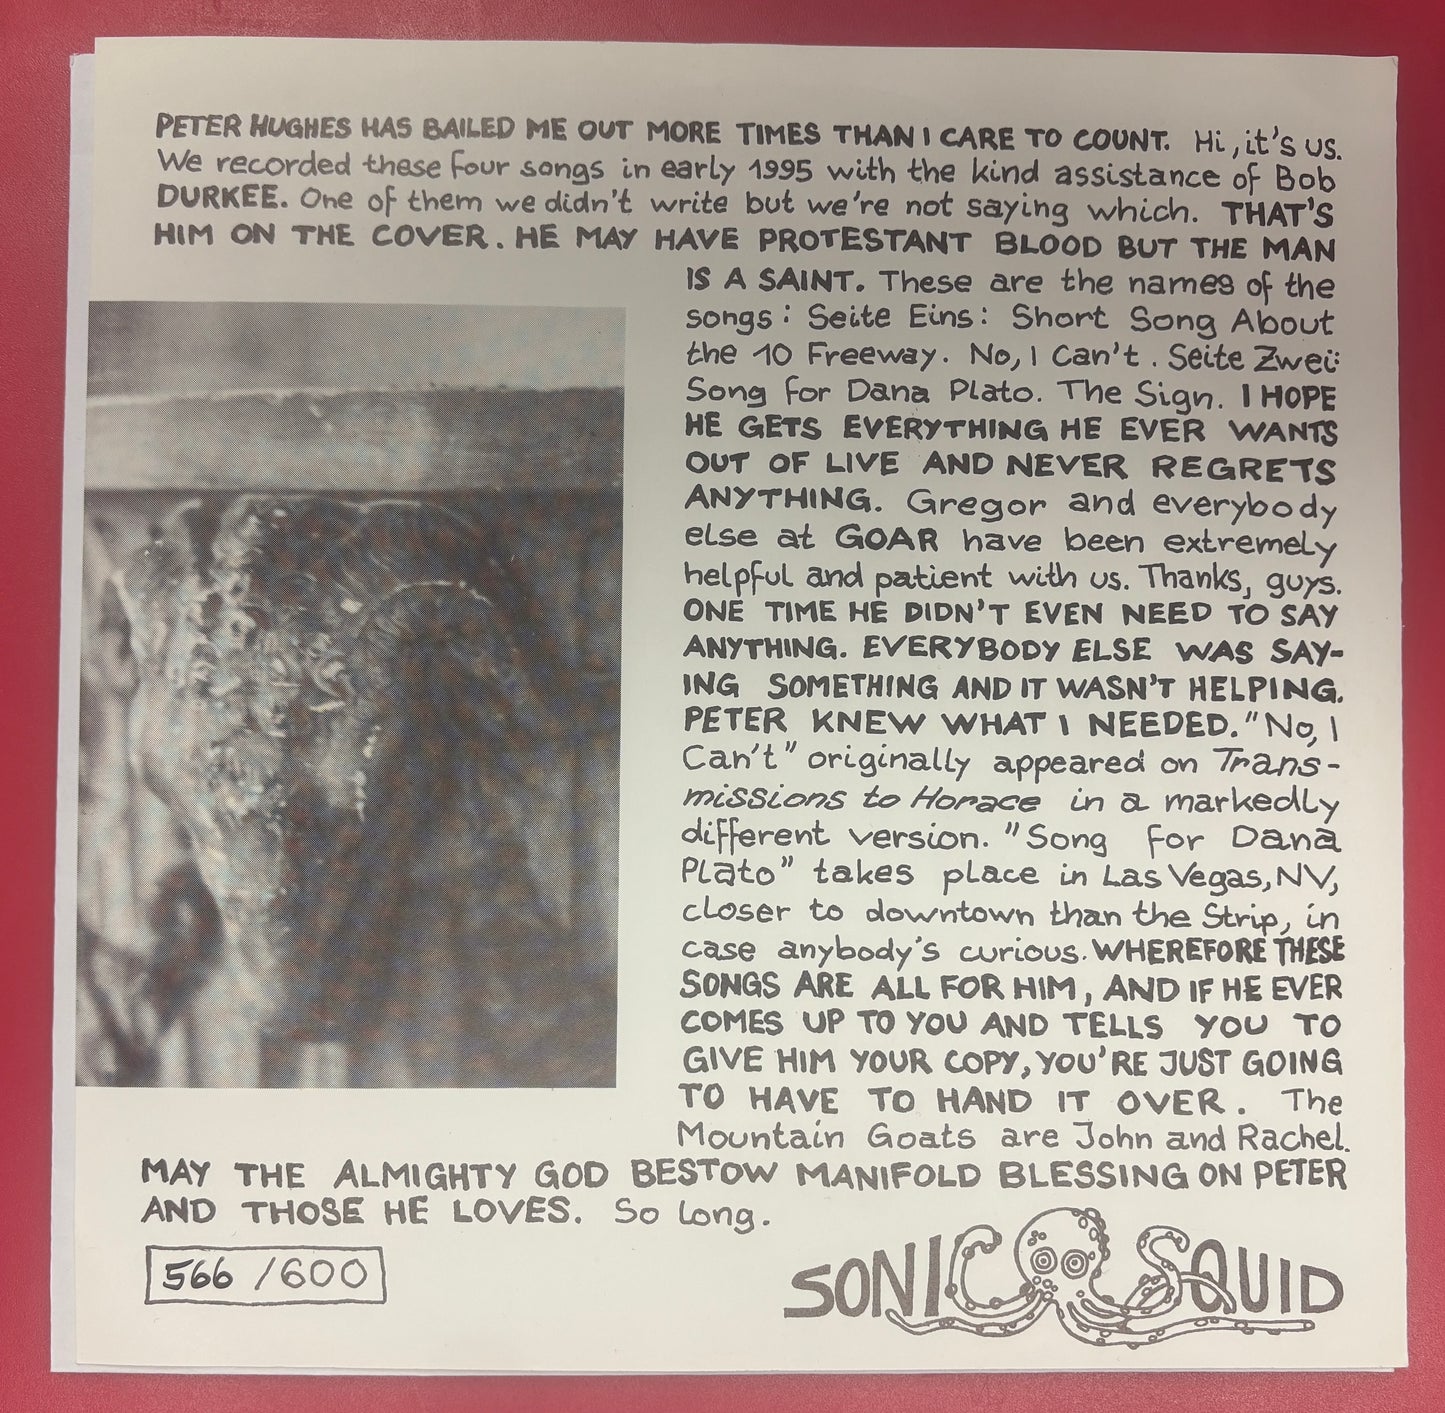 PETER HUGHES HAS BAILED ME OUT MORE TIMES THAN I CARE TO COUNT. Hi, it's us.
We recorded these four songs in early 1995 with the kind assistance of Bob
DURKEE. One of them we didn't write but we're not saying which. THAT'S
HIM ON THE COVER. HE MAY HAVE PROTESTANT BLOOD BUT THE MAN
IS A SAINT. These are the names of the
songs: Seite Eins: Short Song About
the 10 Freeway. No, I Can't. Seite Zwei:
Song for Dana Plato. The Sign. I HOPE
HE GETS EVERYTHING HE EVER WANTS
OUT OF LIVE AND NEVER REGRETS
ANYTHING. Gregor and everybody
else at GOAR have been extremely
helpful and patient with us. Thanks, guys.
ONE TIME HE DIDN'T EVEN NEED TO SAY
ANYTHING. EVERYBODY ELSE WAS SAY-
ING SOMETHING AND IT WASN'T HELPING.
PETER KNEW WHAT I NEEDED. "No, I
Can't" originally appeared on Trans-
missions to Horace in a markedly
different version. "Song for Dana
Plato" takes place in Las Vegas, NV,
closer to downtown than the Strip, in
case anybody's curious. WHEREFORE THESE
SONGS ARE ALL FOR HIM, AND IF HE EVER
COMES UP TO YOU AND TELLS YOU TO
GIVE HIM YOUR COPY, YOU'RE JUST GOING
TO HAVE TO HAND IT OVER. The
Mountain Goats are John and Rachel.
MAY THE ALMIGHTY GOD BESTOW MANIFOLD BLESSING ON PETER
AND THOSE HE LOVES. So long.
566 /600
SONIC SQUID